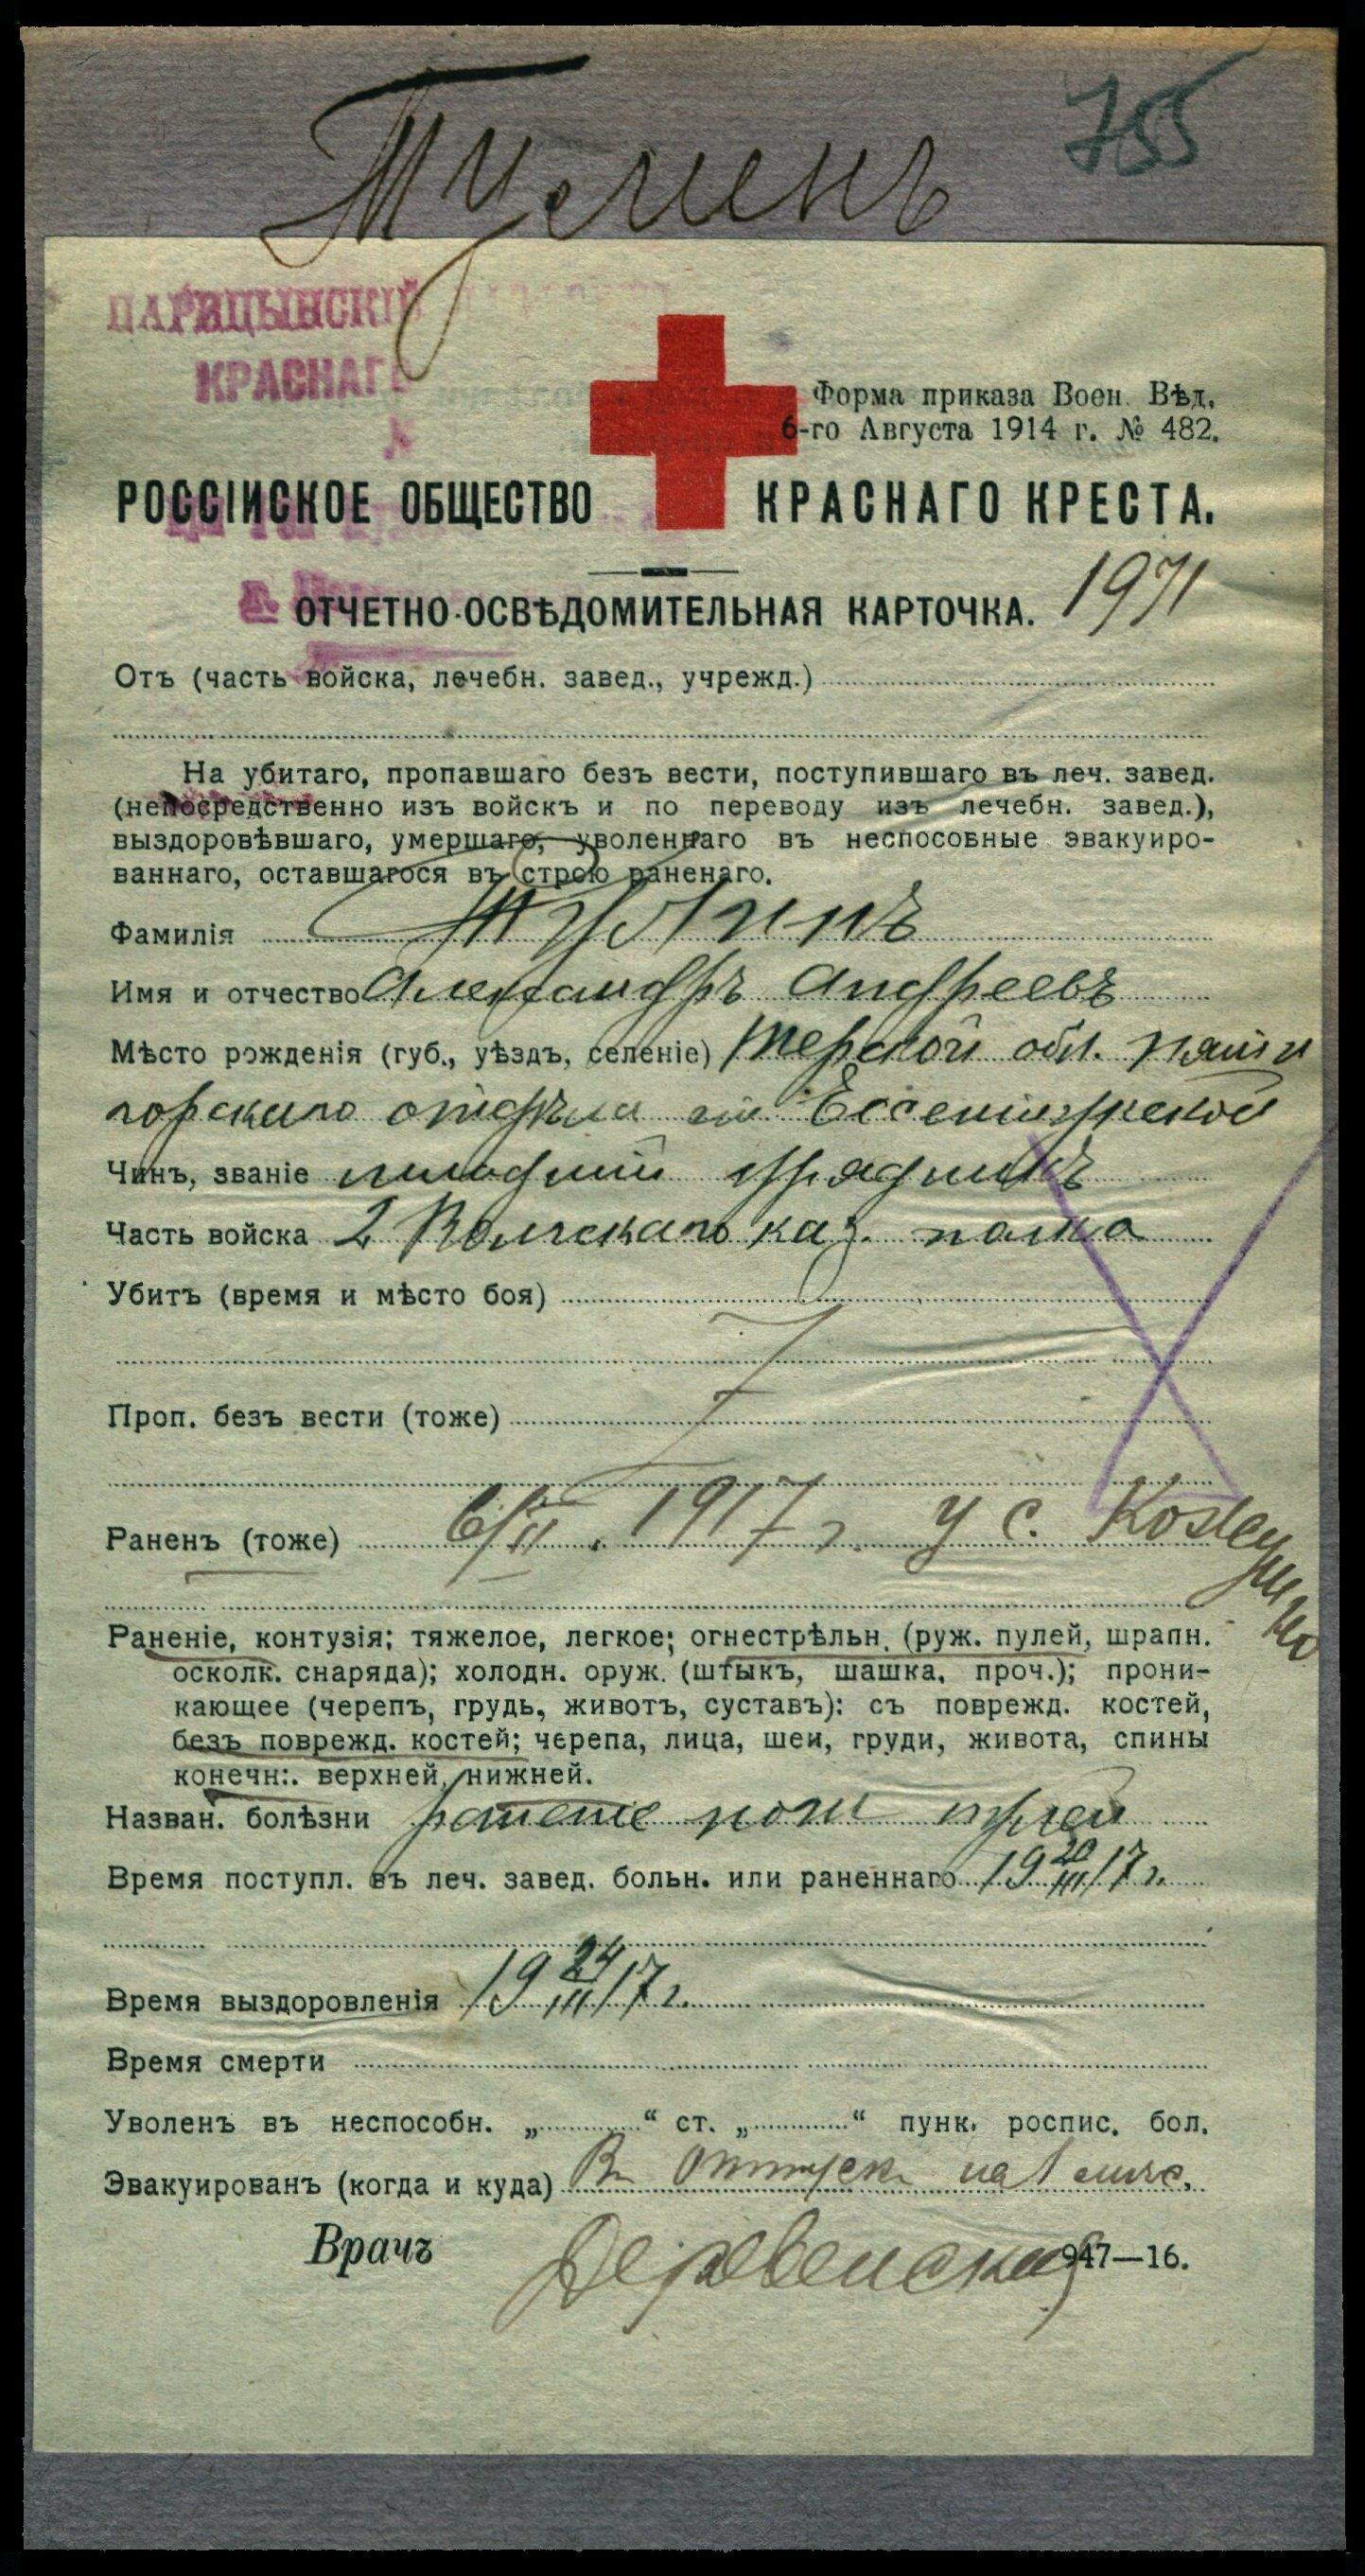 755
ЦАРИЦЫНСКІЙ
КРАСНАГО
Форма приказа Воен. Вѣд.
6-го Августа 1914 г. № 482.
РОССІЙСКОЕ ОБЩЕСТВО КРАСНАГО КРЕСТА.
ОТЧЕТНО-ОСВѢДОМИТЕЛЬНАЯ КАРТОЧКА. 1971
Отъ (часть войска, лечебн. завед., учрежд.)
На убитаго, пропавшаго безъ вести, поступившаго въ леч. завед.
(непосредственно изъ войскъ и по переводу изъ лечебн. завед.),
выздоровѣвшаго, умершаго, уволеннаго въ неспособные эвакуиро-
ваннаго, оставшагося въ строю раненаго.
Фамилія
Имя и отчество Александръ Андреевъ
Мѣсто рожденія (губ., уѣздъ, селеніе) Терской обл. Пяти
горскаго отдѣла ст Ессентукской
Чинъ, званіе младшій урядникъ
Часть войска 2 Волгскаго каз. полка
Убитъ (время и мѣсто боя)
Проп. безъ вести (тоже)
Раненъ (тоже) 6/II. 1917 г. у с.
Раненіе, контузія; тяжелое, легкое; огнестрѣльн. (руж. пулей, шрапн.
осколк. снаряда); холодн. оруж. (штыкъ, шашка, проч.); прони-
кающее (черепъ, грудь, животъ, суставъ): съ поврежд. костей,
безъ поврежд. костей; черепа, лица, шеи, груди, живота, спины
конечн:. верхней, нижней.
Назван. болѣзни раненіе ноги пулей
Время поступл. въ леч. завед. больн. или раненнаго 19 20/III 17 г.
Время выздоровленія 19 24/III 17 г.
Время смерти
Уволенъ въ неспособн. „ “ ст. „ “ пунк. роспис. бол.
Эвакуированъ (когда и куда) Въ отпускъ на 1 мѣс.
Врачъ 947—16.